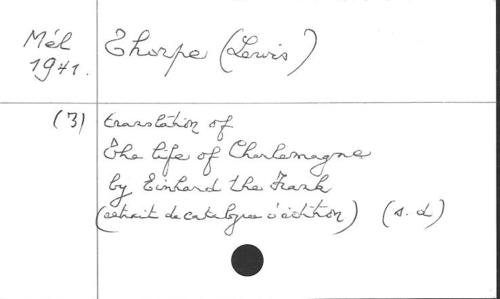 Mél Thorpe (Lewis)
1941.
(3) translation of
The life of Charlemagne
by Einhard the Frank
(extrait de catalogue d'édition) (s.d)